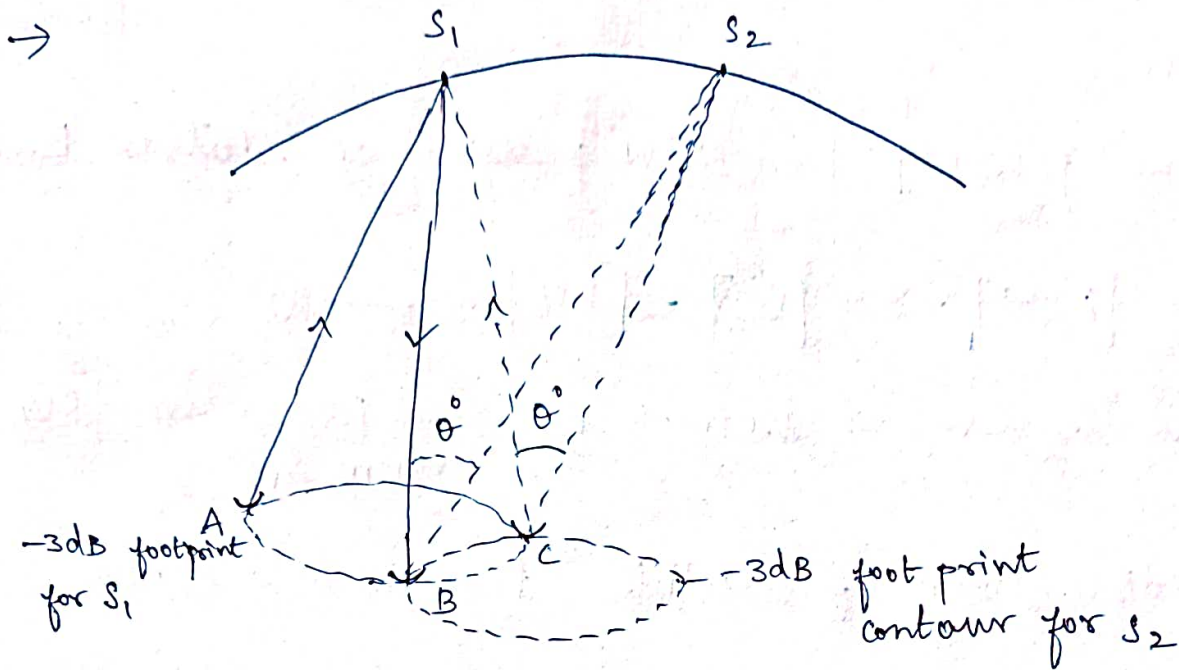 →
S₁
S₂
θ°
θ°
A
-3dB footprint
for S₁
B
C
-3dB foot print
contour for S₂